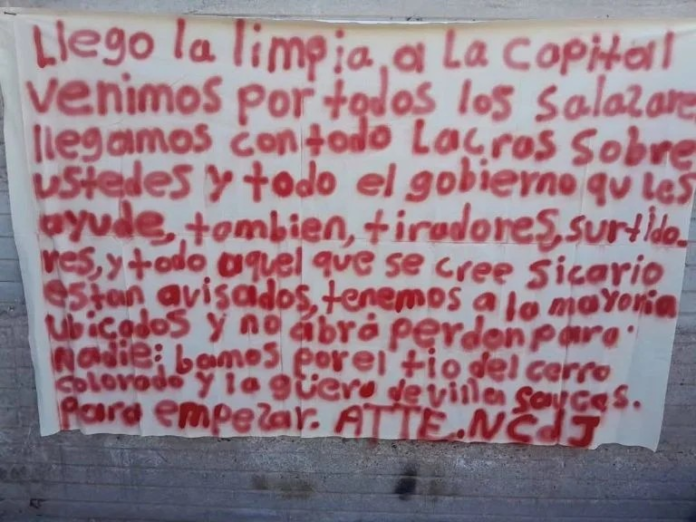 Llego la limpia a La Capital
venimos por todos los Salazare
llegamos con todo Lacras Sobre
ustedes y todo el gobierno qu Les
ayude, tambien, tiradores, surtido-
res, y todo aquel que se cree Sicario
estan avisados, tenemos a la mayoria
ubicados y no abrá perdon para
nadie: bamos por el tio del cerro
colorado y la güera de villa Sauces.
Para empezar. ATTE. NCdJ